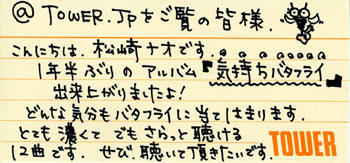 @ TOWER.JPをご覧の皆様.
こんにちは.松崎ナオです.
1年半ぶりの アルバム『気持ちバタフライ』
出来上がりましたよ!
どんな気分もバタフライに当てはまります.
とても 濃くて でも さらっと聴ける
12曲です. ぜひ.聴いて頂きたいです.
TOWER